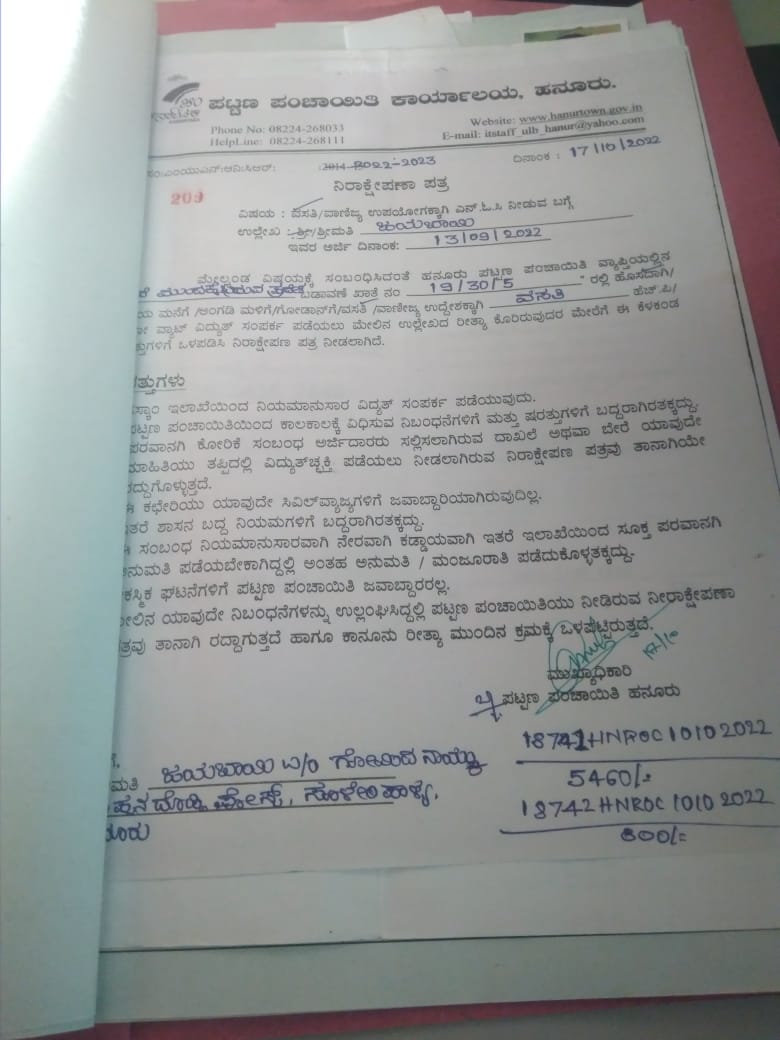 ಪಟ್ಟಣ ಪಂಚಾಯಿತಿ ಕಾರ್ಯಾಲಯ, ಹನೂರು.
Phone No: 08224-268033
HelpLine: 08224-268111
Website: www.hanurtown.gov.in
E-mail: itstaff_ulb_hanur@yahoo.com
ಸಂ:ಎಂಯುಎನ್:ಆನಿ:ಸಿಆರ್: 2022-2023
ದಿನಾಂಕ : 17/10/2022
209
ನಿರಾಕ್ಷೇಪಣಾ ಪತ್ರ
ವಿಷಯ : ವಸತಿ/ವಾಣಿಜ್ಯ ಉಪಯೋಗಕ್ಕಾಗಿ ಎನ್.ಓ.ಸಿ ನೀಡುವ ಬಗ್ಗೆ
ಉಲ್ಲೇಖ : ಶ್ರೀ/ಶ್ರೀಮತಿ ಜಯಬಾಯಿ
ಇವರ ಅರ್ಜಿ ದಿನಾಂಕ: 13/09/2022
ಮೇಲ್ಕಂಡ ವಿಷಯಕ್ಕೆ ಸಂಬಂಧಿಸಿದಂತೆ ಹನೂರು ಪಟ್ಟಣ ಪಂಚಾಯಿತಿ ವ್ಯಾಪ್ತಿಯಲ್ಲಿನ
ಬಡಾವಣೆ ಖಾತೆ ನಂ 19/30/5 " ರಲ್ಲಿ ಹೊಸದಾಗಿ/
ಯ ಮನೆಗೆ /ಅಂಗಡಿ ಮಳಿಗೆ/ಗೋಡಾನ್‌ಗೆ/ವಸತಿ /ವಾಣಿಜ್ಯ ಉದ್ದೇಶಕ್ಕಾಗಿ ವಸತಿ ಹೆಚ್.ಪಿ/
ವ್ಯಾಟ್ ವಿದ್ಯುತ್ ಸಂಪರ್ಕ ಪಡೆಯಲು ಮೇಲಿನ ಉಲ್ಲೇಖದ ರೀತ್ಯಾ ಕೋರಿರುವುದರ ಮೇರೆಗೆ ಈ ಕೆಳಕಂಡ
ತ್ತುಗಳಿಗೆ ಒಳಪಡಿಸಿ ನಿರಾಕ್ಷೇಪಣ ಪತ್ರ ನೀಡಲಾಗಿದೆ.
ರತ್ತುಗಳು
ಸ್ಕಾಂ ಇಲಾಖೆಯಿಂದ ನಿಯಮಾನುಸಾರ ವಿದ್ಯತ್ ಸಂಪರ್ಕ ಪಡೆಯುವುದು.
ಪಟ್ಟಣ ಪಂಚಾಯಿತಿಯಿಂದ ಕಾಲಕಾಲಕ್ಕೆ ವಿಧಿಸುವ ನಿಬಂಧನೆಗಳಿಗೆ ಮತ್ತು ಷರತ್ತುಗಳಿಗೆ ಬದ್ದರಾಗಿರತಕ್ಕದ್ದು.
ಪರವಾನಗಿ ಕೋರಿಕೆ ಸಂಬಂಧ ಅರ್ಜಿದಾರರು ಸಲ್ಲಿಸಲಾಗಿರುವ ದಾಖಲೆ ಅಥವಾ ಬೇರೆ ಯಾವುದೇ
ಮಾಹಿತಿಯು ತಪ್ಪಿದಲ್ಲಿ ವಿದ್ಯುತ್‌ಚ್ಛಕ್ತಿ ಪಡೆಯಲು ನೀಡಲಾಗಿರುವ ನಿರಾಕ್ಷೇಪಣ ಪತ್ರವು ತಾನಾಗಿಯೇ
ರದ್ದುಗೊಳ್ಳುತ್ತದೆ.
ಈ ಕಛೇರಿಯು ಯಾವುದೇ ಸಿವಿಲ್‌ವ್ಯಾಜ್ಯಗಳಿಗೆ ಜವಾಬ್ದಾರಿಯಾಗಿರುವುದಿಲ್ಲ.
ಇತರೆ ಶಾಸನ ಬದ್ದ ನಿಯಮಗಳಿಗೆ ಬದ್ದರಾಗಿರತಕ್ಕದ್ದು.
ಈ ಸಂಬಂಧ ನಿಯಮಾನುಸಾರವಾಗಿ ನೇರವಾಗಿ ಕಡ್ಡಾಯವಾಗಿ ಇತರೆ ಇಲಾಖೆಯಿಂದ ಸೂಕ್ತ ಪರವಾನಗಿ
ಅನುಮತಿ ಪಡೆಯಬೇಕಾಗಿದ್ದಲ್ಲಿ ಅಂತಹ ಅನುಮತಿ / ಮಂಜೂರಾತಿ ಪಡೆದುಕೊಳ್ಳತಕ್ಕದ್ದು.
ಕಸ್ಮಿಕ ಘಟನೆಗಳಿಗೆ ಪಟ್ಟಣ ಪಂಚಾಯಿತಿ ಜವಾಬ್ದಾರರಲ್ಲ.
ಮೇಲಿನ ಯಾವುದೇ ನಿಬಂಧನೆಗಳನ್ನು ಉಲ್ಲಂಘಿಸಿದ್ದಲ್ಲಿ ಪಟ್ಟಣ ಪಂಚಾಯಿತಿಯು ನೀಡಿರುವ ನೀರಾಕ್ಷೇಪಣಾ
ತ್ರವು ತಾನಾಗಿ ರದ್ದಾಗುತ್ತದೆ ಹಾಗೂ ಕಾನೂನು ರೀತ್ಯಾ ಮುಂದಿನ ಕ್ರಮಕ್ಕೆ ಒಳಪಟ್ಟಿರುತ್ತದೆ.
17/10
ಮುಖ್ಯಾಧಿಕಾರಿ
ಪಟ್ಟಣ ಪಂಚಾಯಿತಿ ಹನೂರು
ಗೆ,
ಮತಿ ಜಯಬಾಯಿ W/o ಗೋವಿಂದ ನಾಯ್ಕ
ನೂರು
18741HNROC10102022
5460/-
18742HNROC10102022
600/-